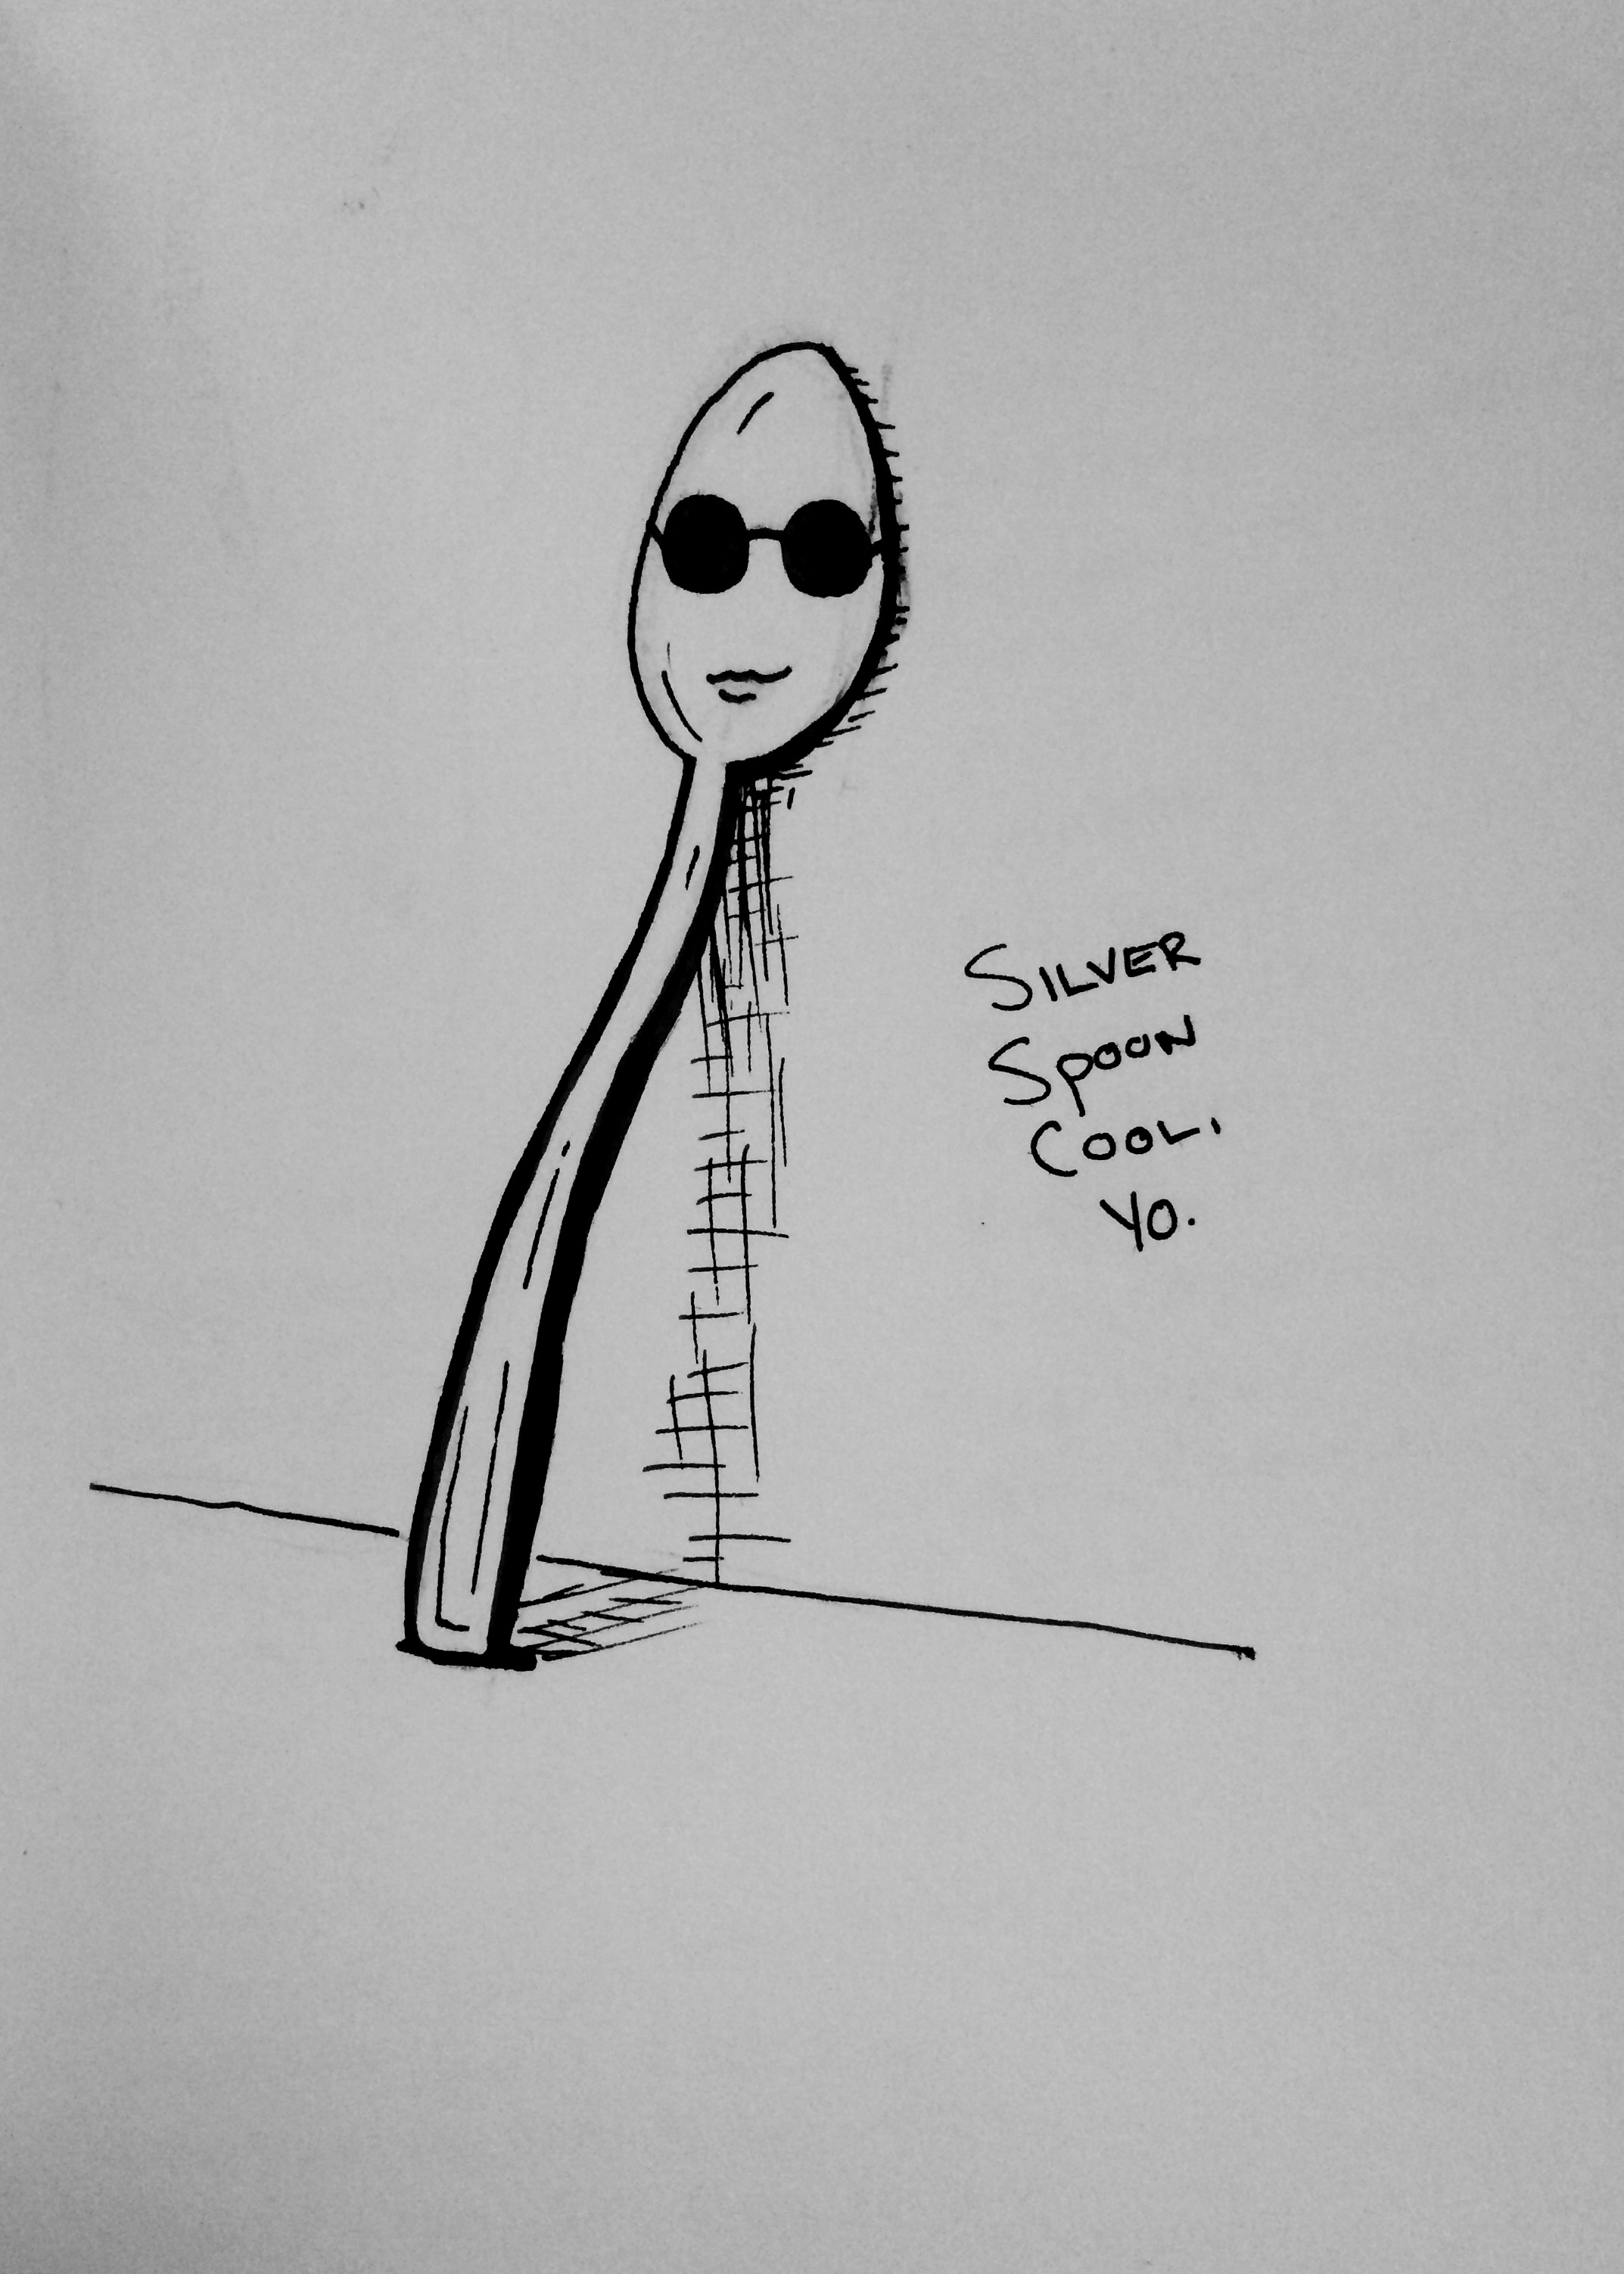 SILVER
SPOON
COOL,
YO.